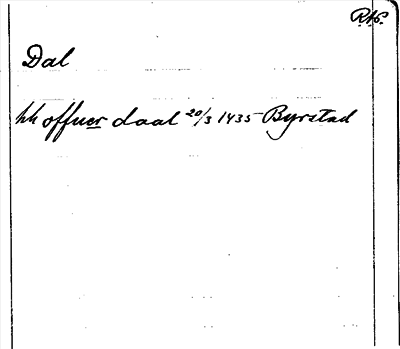 R.A.P.
Dal
hh offuer daal 20/3 1435 Byrstad